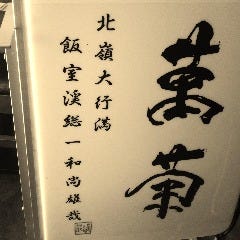 萬菊
北嶺大行満
飯室渓総一和尚雄哉